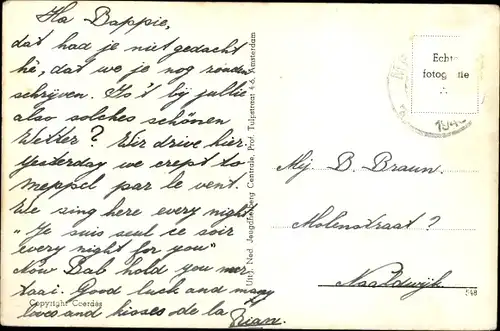 Ha Bappie,
dat had je niet gedacht
hè, dat we je nog zouden
schrijven. Is 't bij jullie
also solches schönen
Wetter? Wir drive hier
Yesterday we crept to
Meppel par le vent.
We sing here every night
"Je suis seul ce soir
every night for you"
Now Bab hold you mer
taai. Good luck and many
loves and kisses de la
Trian.
Copyright Coerdès
Uitg. Ned. Jeugdherberg Centrale, Prof. Tulpstraat 4-6, Amsterdam
Echte
fotografie
Mej B. Braun.
Molenstraat ?
Naaldwijk
548